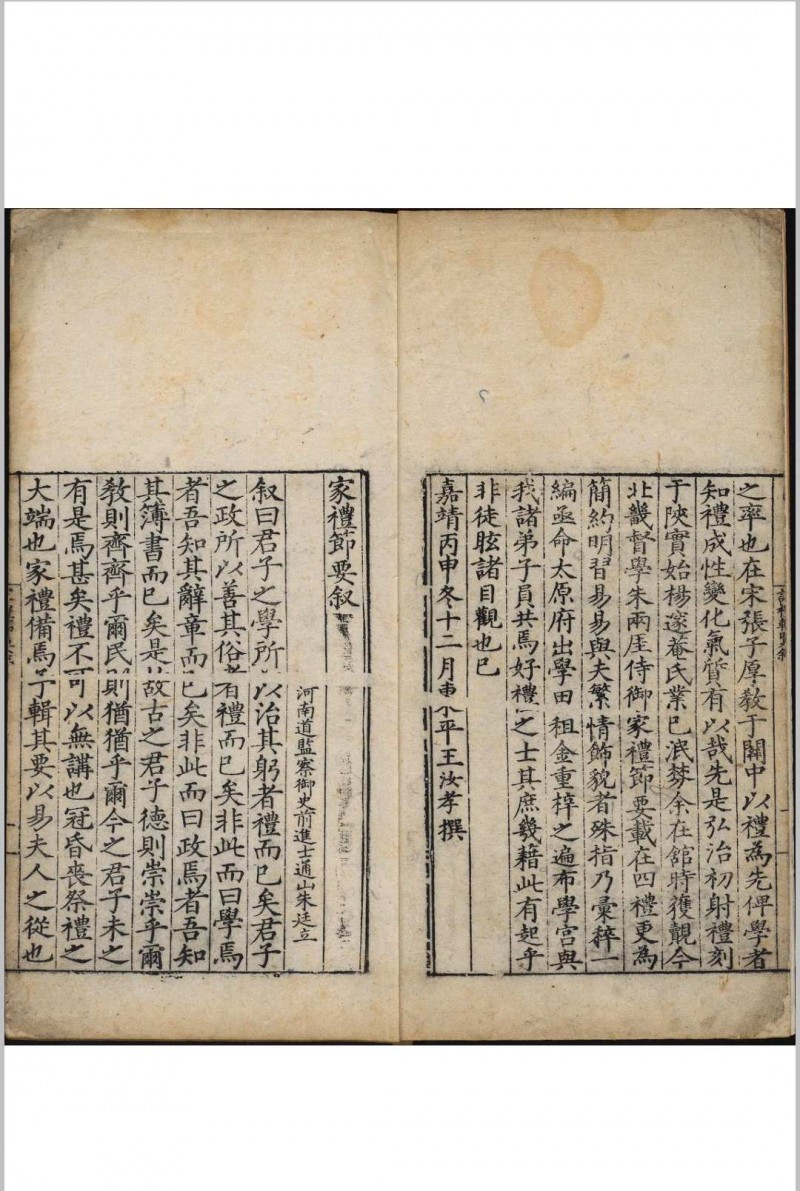 之率也在宋張子厚教于關中以禮為先俾學者
知禮成性變化氣質有以哉先是弘治初射禮刻
于陝實始楊邃菴氏業已泯棼余在館時獲覩今
北畿督學朱兩厓侍御家禮節要載在四禮更為
簡約明習易易與夫繁情飾貌者殊指乃彙稡一
編亟命太原府出學田租金重梓之遍布學宮與
我諸弟子員共焉好禮之士其庶幾藉此有起乎
非徒眩諸目觀也已
嘉靖丙申冬十二月東平王汝孝撰
家禮節要叙
河南道監察御史前進士通山朱廷立
叙曰君子之學所以治其躬者禮而已矣君子
之政所以善其俗者有禮而已矣非此而曰學焉
者吾知其辭章而已矣非此而曰政焉者吾知
其簿書而已矣是故古之君子德則崇崇乎爾
教則齊齊乎爾民則猶猶乎爾今之君子未之
有是焉甚矣禮不可以無講也冠昏喪祭禮之
大端也家禮備焉予輯其要以易夫人之從也